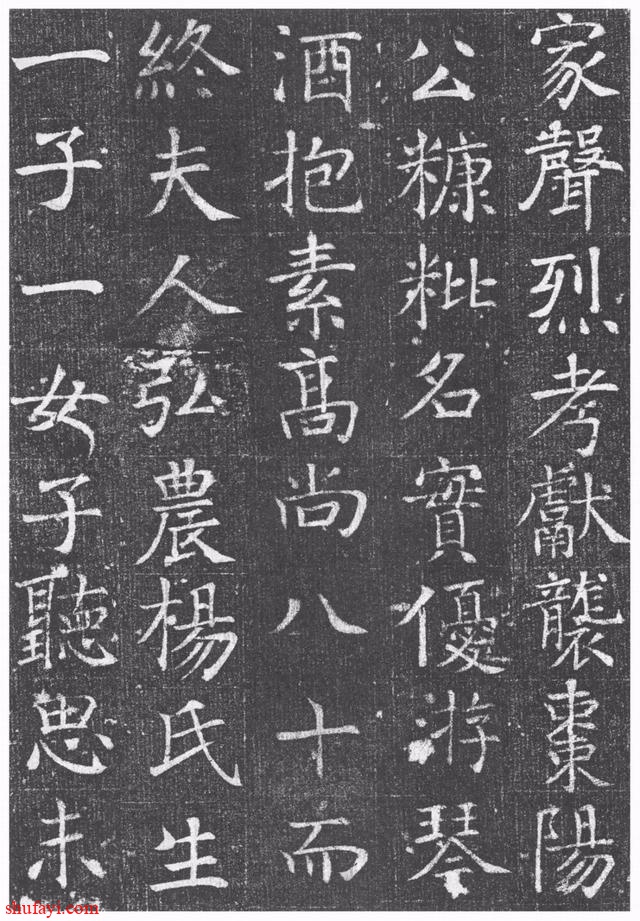 家聲烈考獻襲棗陽
公糠粃名實優游琴
酒抱素高尚八十而
終夫人弘農楊氏生
一子一女子聽思未
shufayi.com